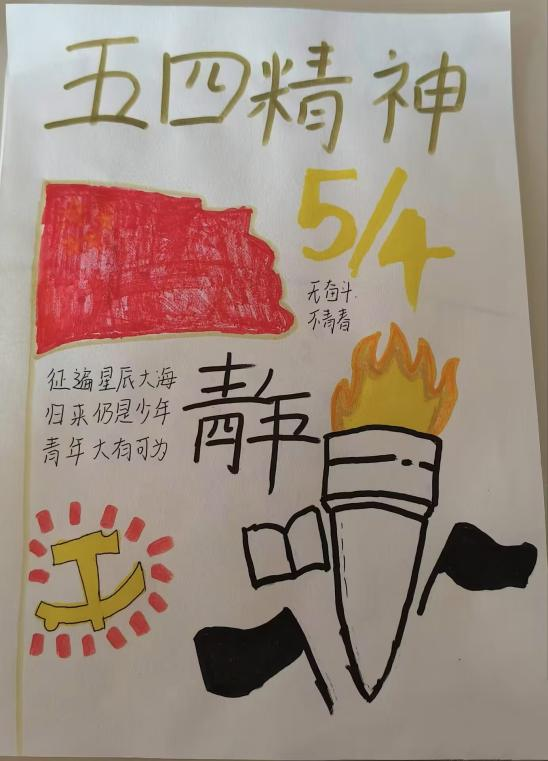 五四精神
5/4
无奋斗.
不青春
征遍星辰大海
归来仍是少年
青年大有可为
青年